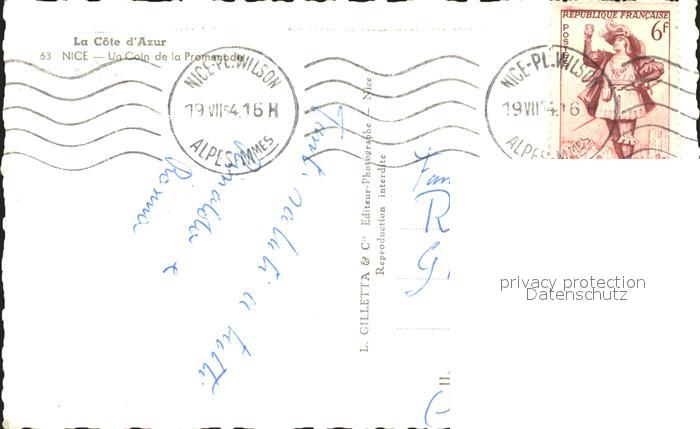 La Côte d'Azur
63 NICE — Un Coin de la Promenade
NICE-PL. WILSON
19 VII 54.16 H
ALPES MMES
NICE-PL. WILSON
19 VII 54.16
ALPES MMES
REPUBLIQUE FRANÇAISE
6F
Tanti saluti a tutti
L. GILLETTA & Cie Editeur-Photographe — Nice
Reproduction interdite
R
G
privacy protection
Datenschutz